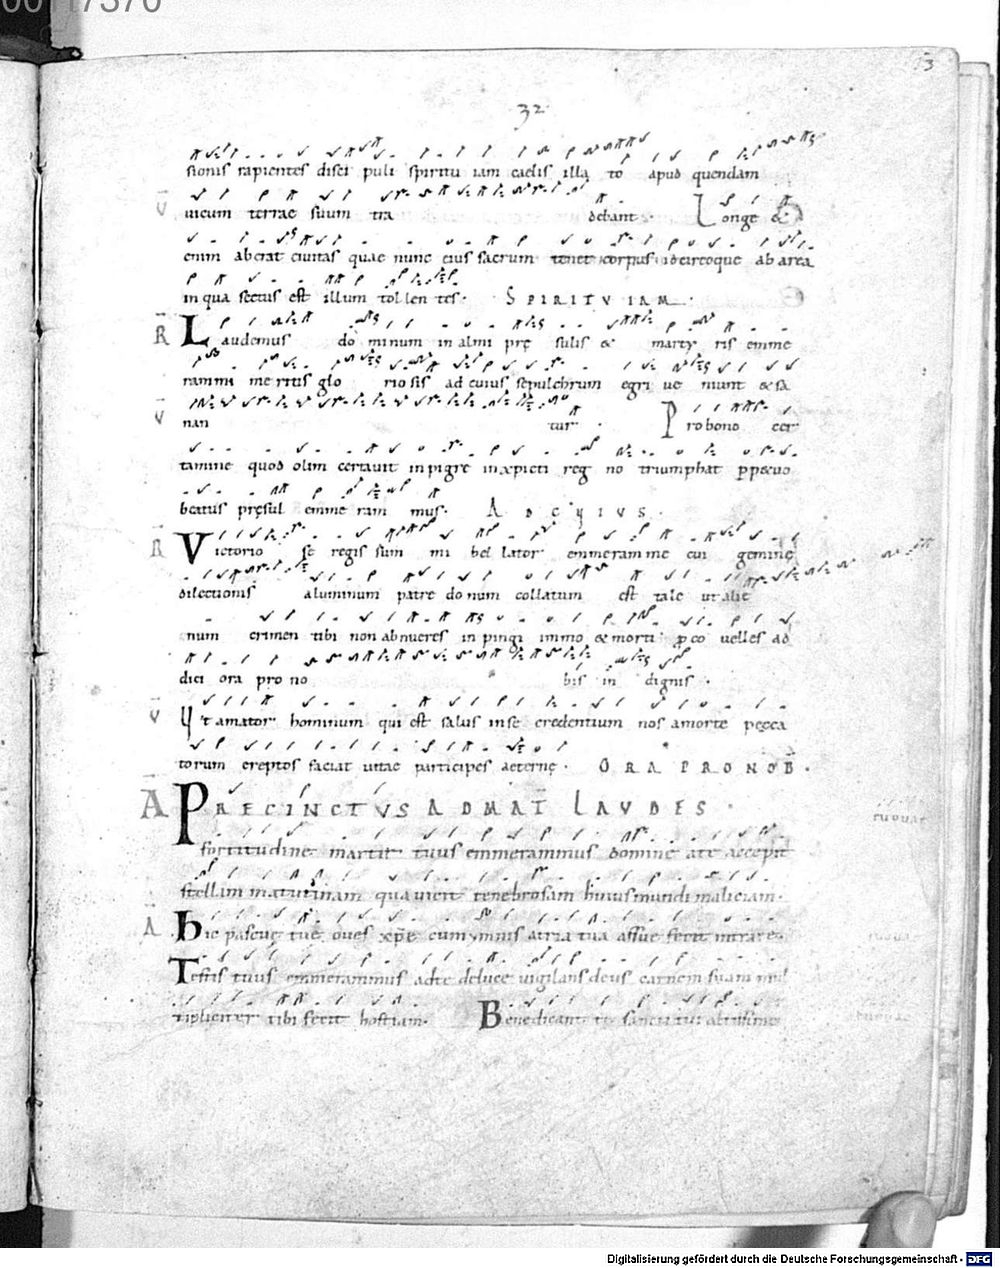 13
32
sionis rapientes disci puli spiritu iam caelis illa to apud quendam
V vicum terrae suum tra debant. Longe &
enim aberat civitas quae nunc eius sacrum tenet corpus ideircoque ab area
in qua sectus est illum tollen tes. SPIRITV IAM.
R Laudemus do minum in almi prę sulis & marty ris emme
rammi me ritis glo rio sis ad cuius sepulchrum egri ve niunt & sa
V nan tur. Pro bono cer
tamine quod olim certavit in pigre reg no triumphat ppetuo
beatus pręsul emme ram mus. AD CUIUS.
R Victorio se regis sum mi bel lator emmeramme cui geminę
dilectionis aluminum patre do num collatum est tale ut alie
num crimen tibi non abnueres in pingi immo & morti p co velles ad
dici ora pro no bis in dignis.
V Ut amator hominum qui est salus in se credentium nos a morte pecca
torum ereptos faciat vitae participes aeternę. ORA PRO NOB.
A PRAECINCTUS AD MAT LAVDES.
fortitudine martir tuus emmerammus domine a te accepit
stellam matutinam qua vicit tenebrosam huius mundi maliciam.
A Hic pascuę tuę oves xpe cum ymnis atria tua assue fecit intrare.
Testis tuus emmerammus ad te de luce vigilans deus carnem suam mul
tipliciter tibi fecit hostiam. Benedicant te sancti tui altissime